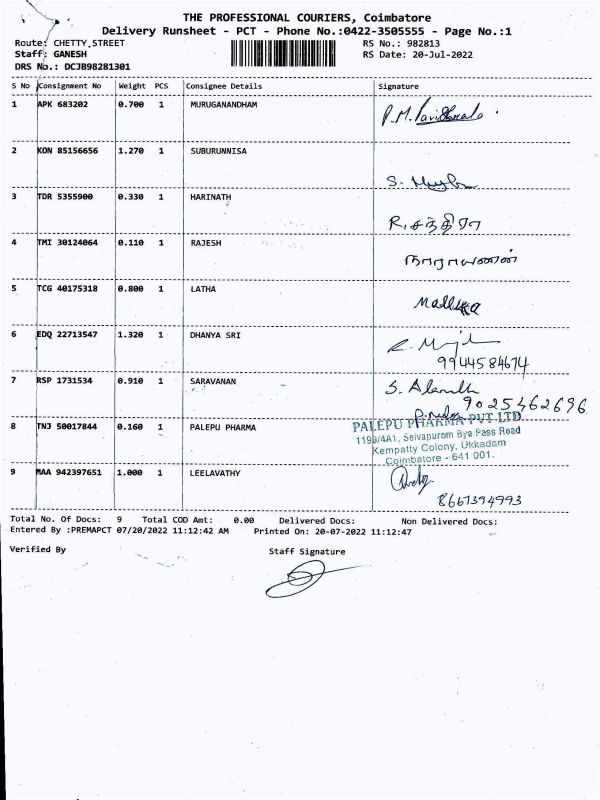 THE PROFESSIONAL COURIERS, Coimbatore
Delivery Runsheet - PCT - Phone No.:0422-3505555 - Page No.:1
Route: CHETTY STREET
RS No.: 982813
Staff: GANESH
RS Date: 20-Jul-2022
DRS No.: DCJB98281301
S No Consignment No Weight PCS Consignee Details Signature
1 APK 683202 0.700 1 MURUGANANDHAM
2 KON 85156656 1.270 1 SUBURUNNISA
3 TDR 5355900 0.330 1 HARINATH
R. சந்திரா
4 TMI 30124064 0.110 1 RAJESH
நாராயணன்
5 TCG 40175318 0.800 1 LATHA
Mallika
6 EDQ 22713547 1.320 1 DHANYA SRI
9944584674
7 RSP 1731534 0.910 1 SARAVANAN
9025462696
8 TNJ 50017844 0.160 1 PALEPU PHARMA
PALEPU PHARMA PVT LTD
1199/4A1, Selvapuram Bye Pass Road
Kempatty Colony, Ukkadam
Coimbatore - 641 001.
9 MAA 942397651 1.000 1 LEELAVATHY
8667394993
Total No. Of Docs: 9 Total COD Amt: 0.00 Delivered Docs: Non Delivered Docs:
Entered By :PREMAPCT 07/20/2022 11:12:42 AM Printed On: 20-07-2022 11:12:47
Verified By
Staff Signature